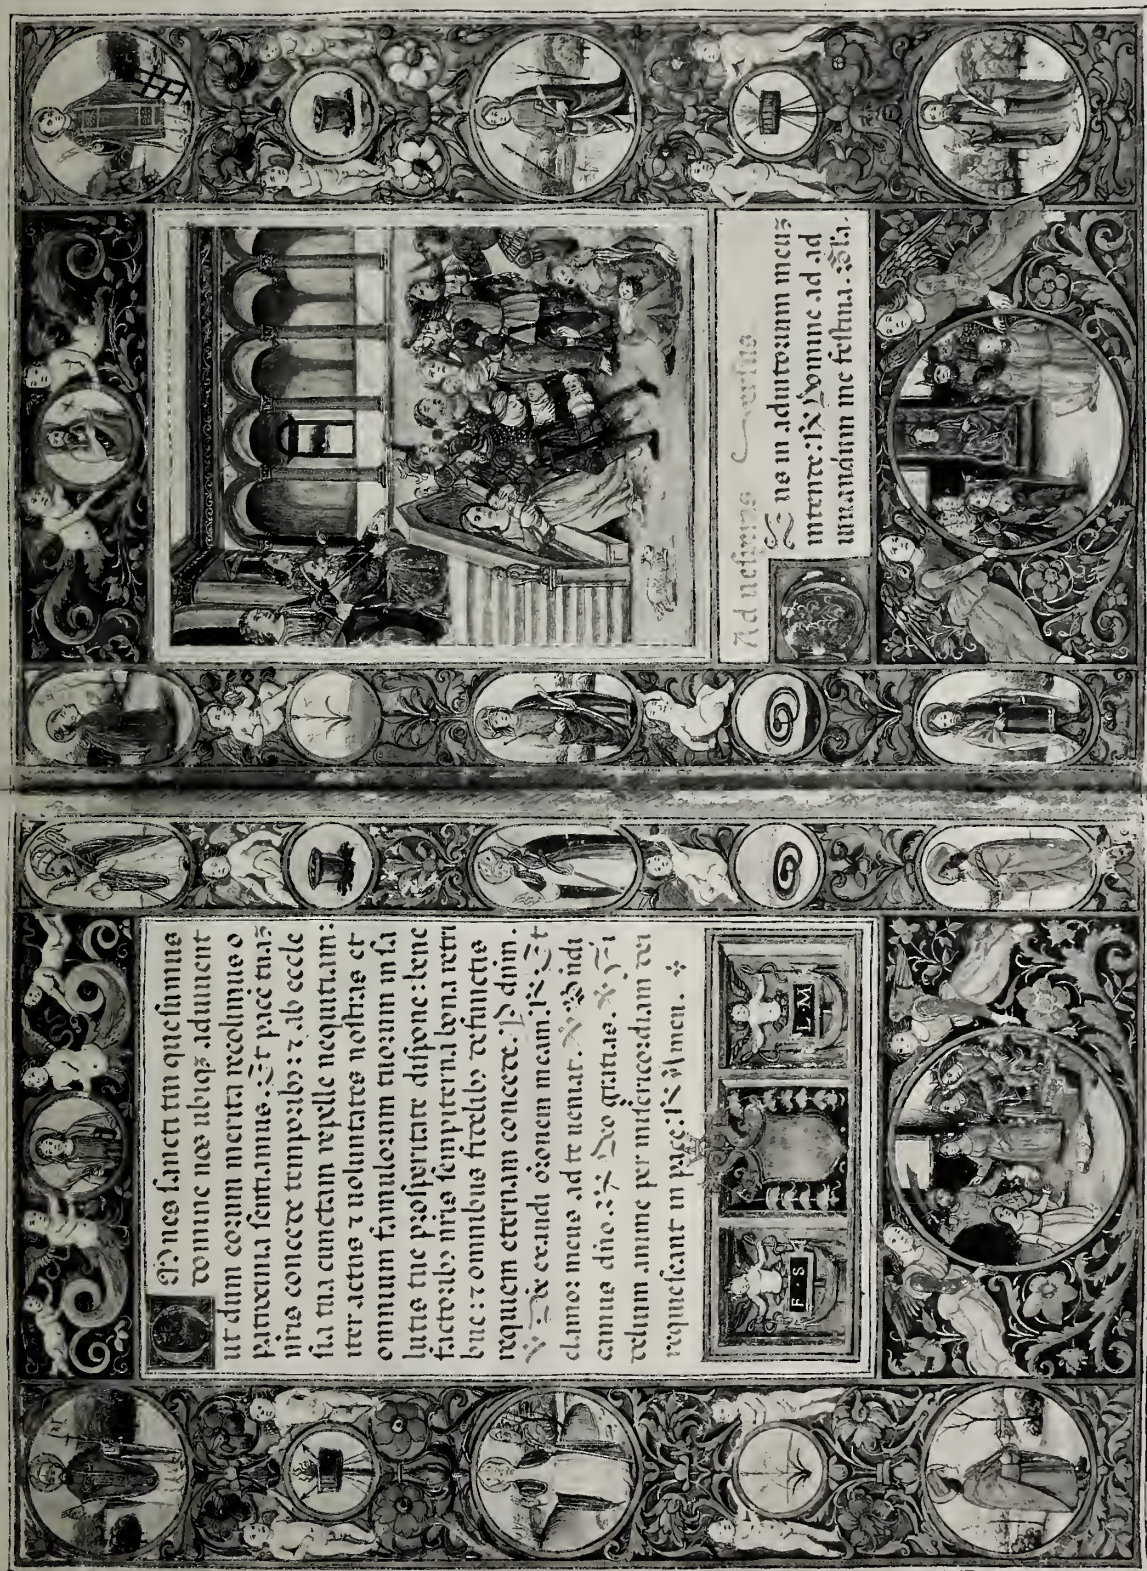 OMnes sancti tui quesumus
domine nos ubiqꝫ adiuuent
ut dum eorum merita recolimus
patrocinia sentiamus. Et pacē tuaꝫ
nr̄is concede temporibꝫ: ⁊ ab eccle
sia tua cunctam repelle nequitiam:
iter actus ⁊ uoluntates nostras et
omnium famulorum tuorum in sa
lutis tue prosperitate dispone: bene
factoribꝫ nr̄is sempiterna bona retri
bue: ⁊ omnibus fidelibꝫ defunctis
requiem eternam concede. P dn̄m.
℣ Dn̄e exaudi or̄onem meam. ℟ Et
clamor meus ad te ueniat. ℣ Bn̄di
camus dn̄o. ℟ Deo gratias. ℣ Fi
delum anime per misericordiam dei
requiescant in pace. ℟ Amen.
F S
L·M
Versus
DEus in adiutorium meuꝫ
intende. ℟ Domine ad ad
iuuandum me festina. Gl̄a.